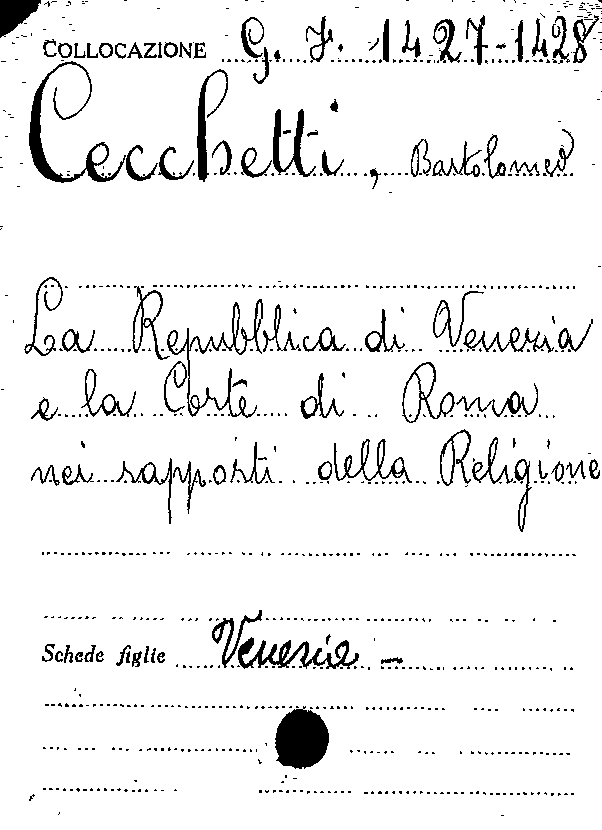 COLLOCAZIONE G. F. 1427-1428
Cecchetti, Bartolomeo
La Repubblica di Venezia
e la Corte di Roma
nei rapporti della Religione
Schede figlie Venezia -